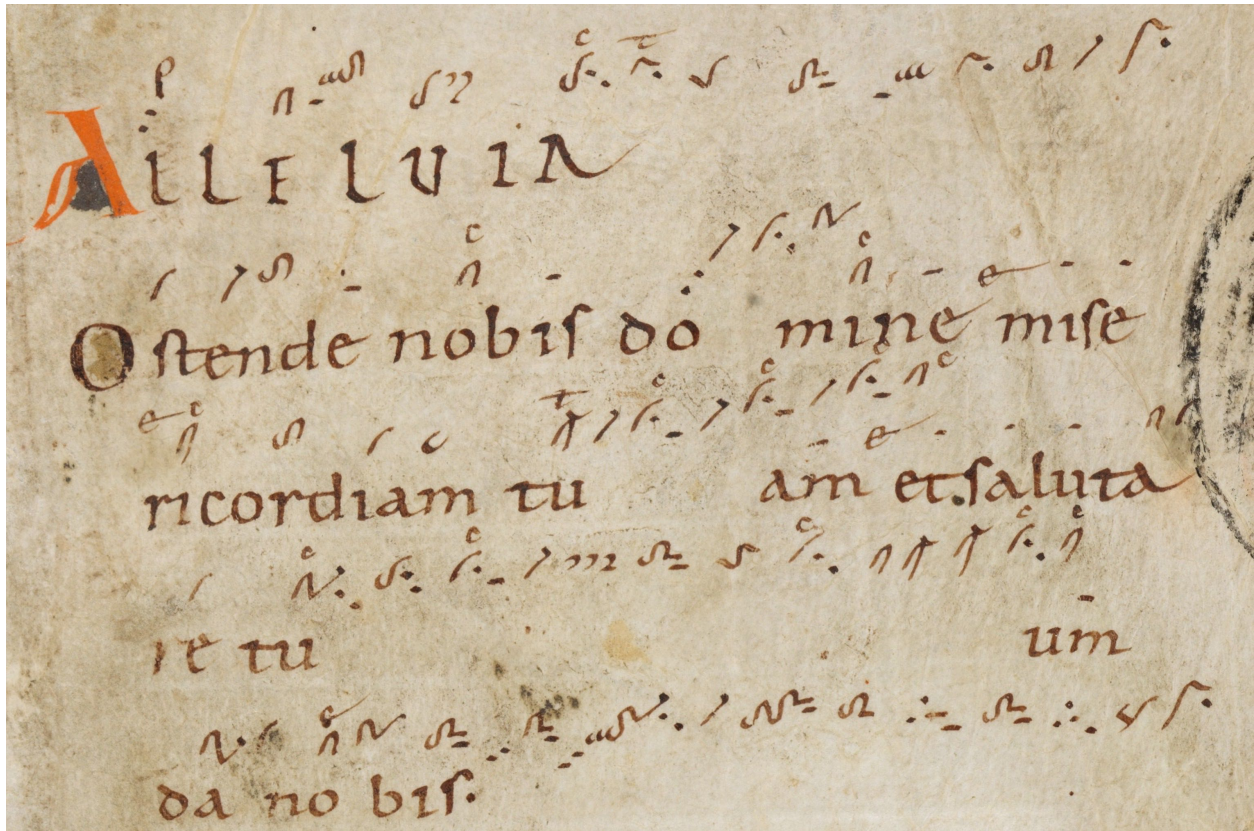 ALLELUIA
Ostende nobis do mine mise
ricordiam tu am et saluta
re tu um
da no bis.